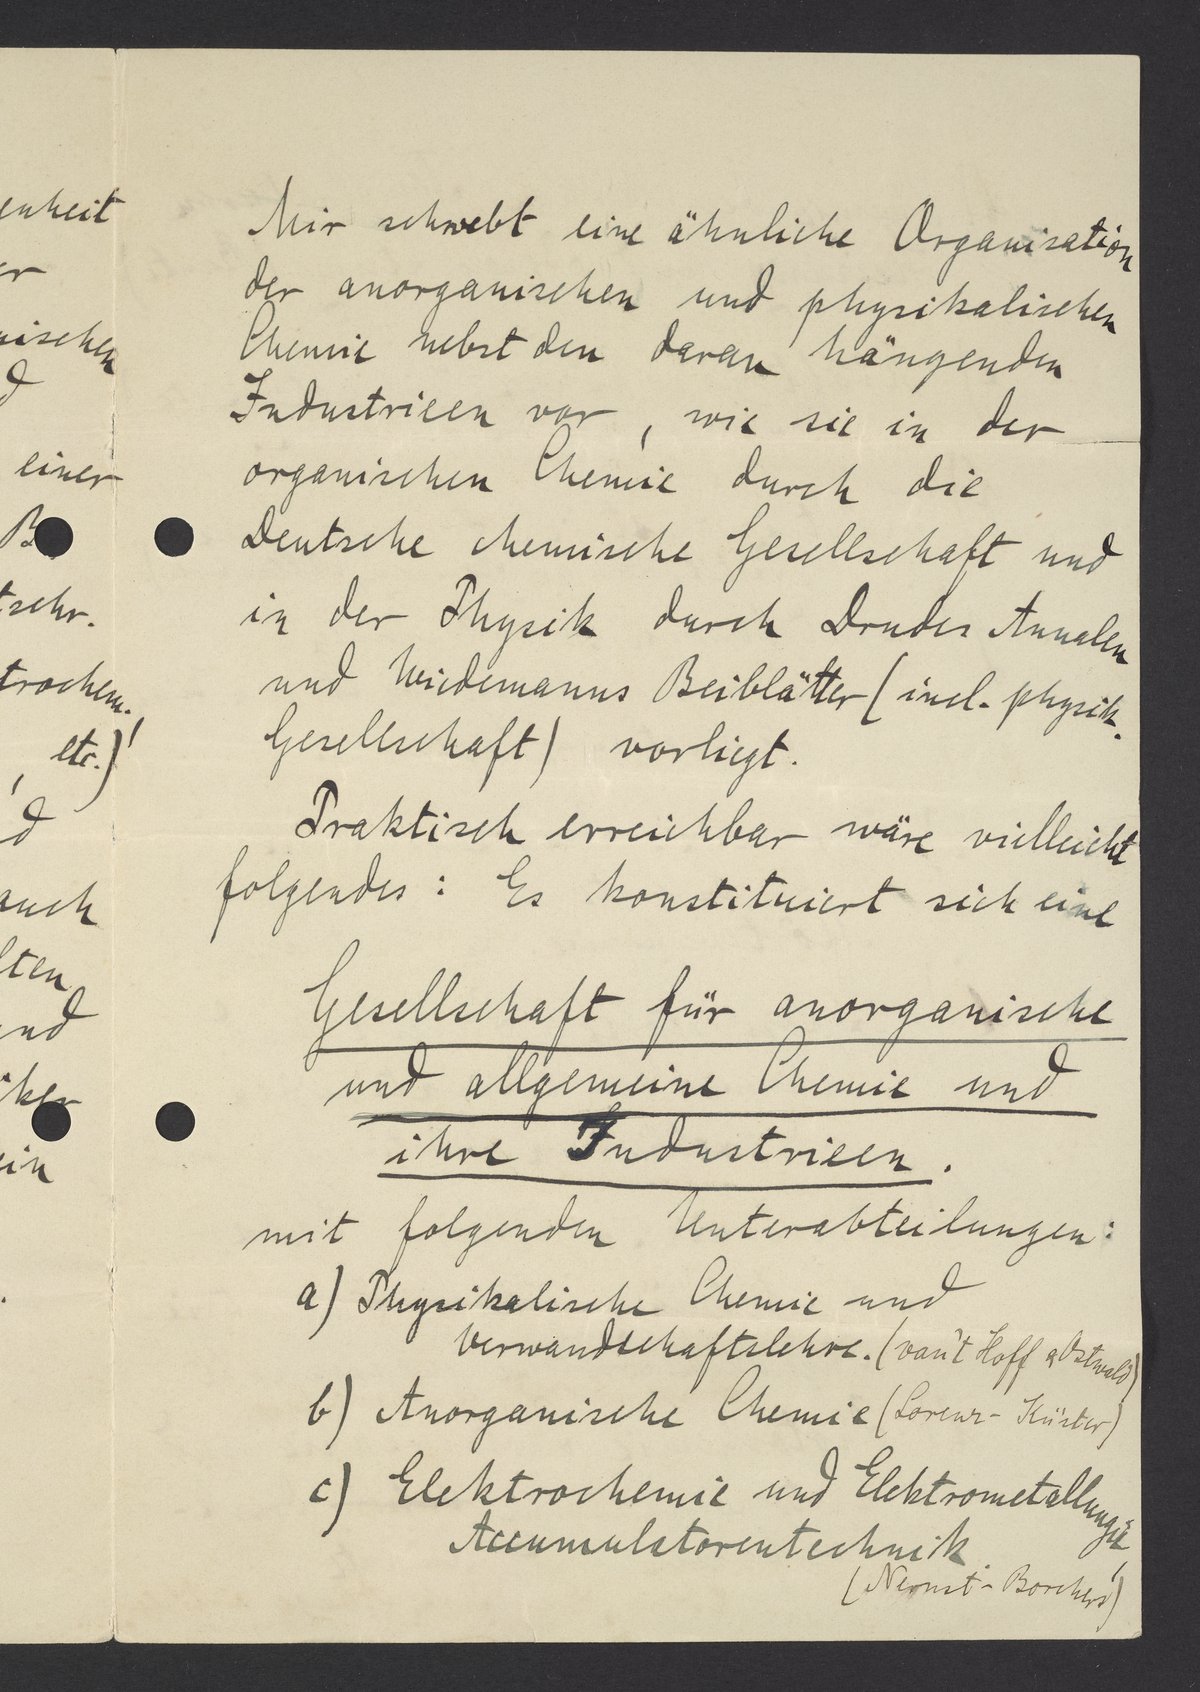 enheit
er
nischen
d
einer
B
tschr.
trochem.
, etc.)
d
auch
lten
und
iker
ein
Mir schwebt eine ähnliche Organisation
der anorganischen und physikalischen
Chemie nebst den daran hängenden
Industrieen vor, wie sie in der
organischen Chemie durch die
Deutsche chemische Gesellschaft und
in der Physik durch Drudes Annalen
und Wiedemanns Beiblätter (incl. physik.
Gesellschaft) vorliegt.
Praktisch erreichbar wäre vielleicht
folgendes: Es konstituiert sich eine
Gesellschaft für anorganische
und allgemeine Chemie und
ihre Industrieen.
mit folgenden Unterabteilungen:
a) Physikalische Chemie und
Verwandschaftslehre. (van't Hoff Ostwald)
b) Anorganische Chemie (Lorenz - Küster)
c) Elektrochemie und Elektrometallurgie,
Accumulatorentechnik
(Nernst - Borchers)